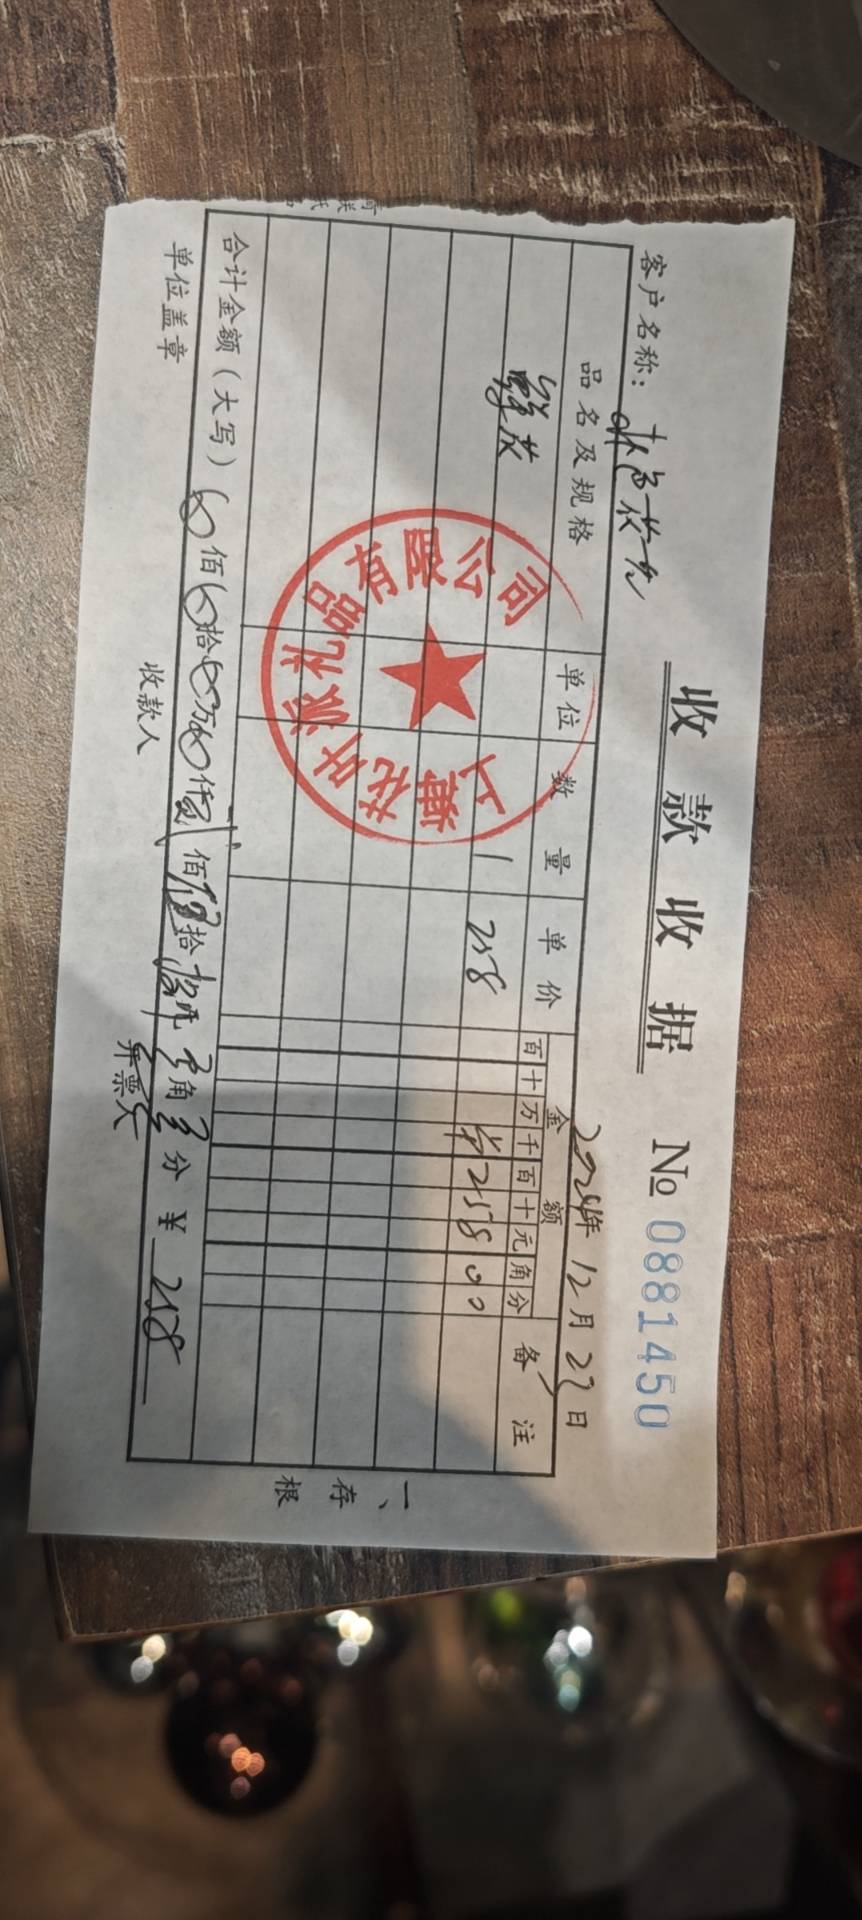 收款收据
№ 0881450
客户名称：
2024年 12月 27日
品名及规格 单位 数量 单价 金额 备注
百 十 万 千 百 十 元 角 分
鲜花 1 258 ¥ 2 5 8 0 0
合计金额（大写） 佰 拾 万 仟 贰佰 伍拾 捌元 零角 零分 ¥ 258
单位盖章 收款人 开票人
一、存根
上海花叶派礼品有限公司